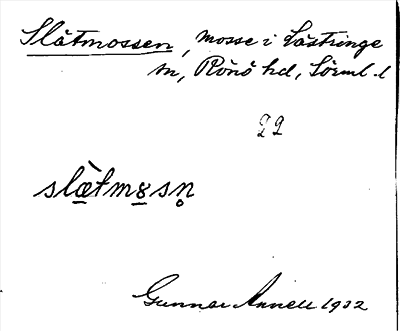 Slätmossen, mosse i Lästringe
sn, Rönö hd, Sörml. l
22
slæ̀tmɷsn̥
Gunnar Annell 1932